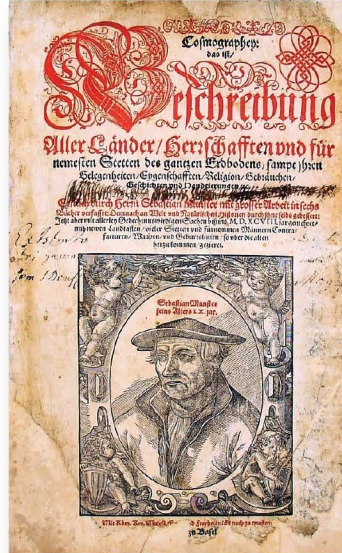 Cosmographey:
das ist/
Beschreibung
Aller Länder/Herrschafften vnd für
nemesten Stetten des gantzen Erdbodens/sampt jhren
Gelegenheiten/Eygenschafften/Religion/Gebräuchen/
Geschichten vnd Handtierungen
durch Herrn Sebastian Munster mit grosser Arbeit in sechs
Bücher verfasset: Demnach an Welt vnd Natürlichen Historien durch jhne selbs gebessert:
Jetz aber mit allerley Gedechtnuswirdigen Sachen bis M. D. XCVIII. jar gemehret
mit newen Landtaflen/vieler Stetten vnd fürnemmen Männern Contra
facturen/Waapen/vnd Geburtslinien/so vber die alten
herzu kommen/gezieret.
Sebastian Munster
seins Alters LX. jar.
Mit Röm. Key. Mayest.
Freyheit nicht nach zu
zu Basel